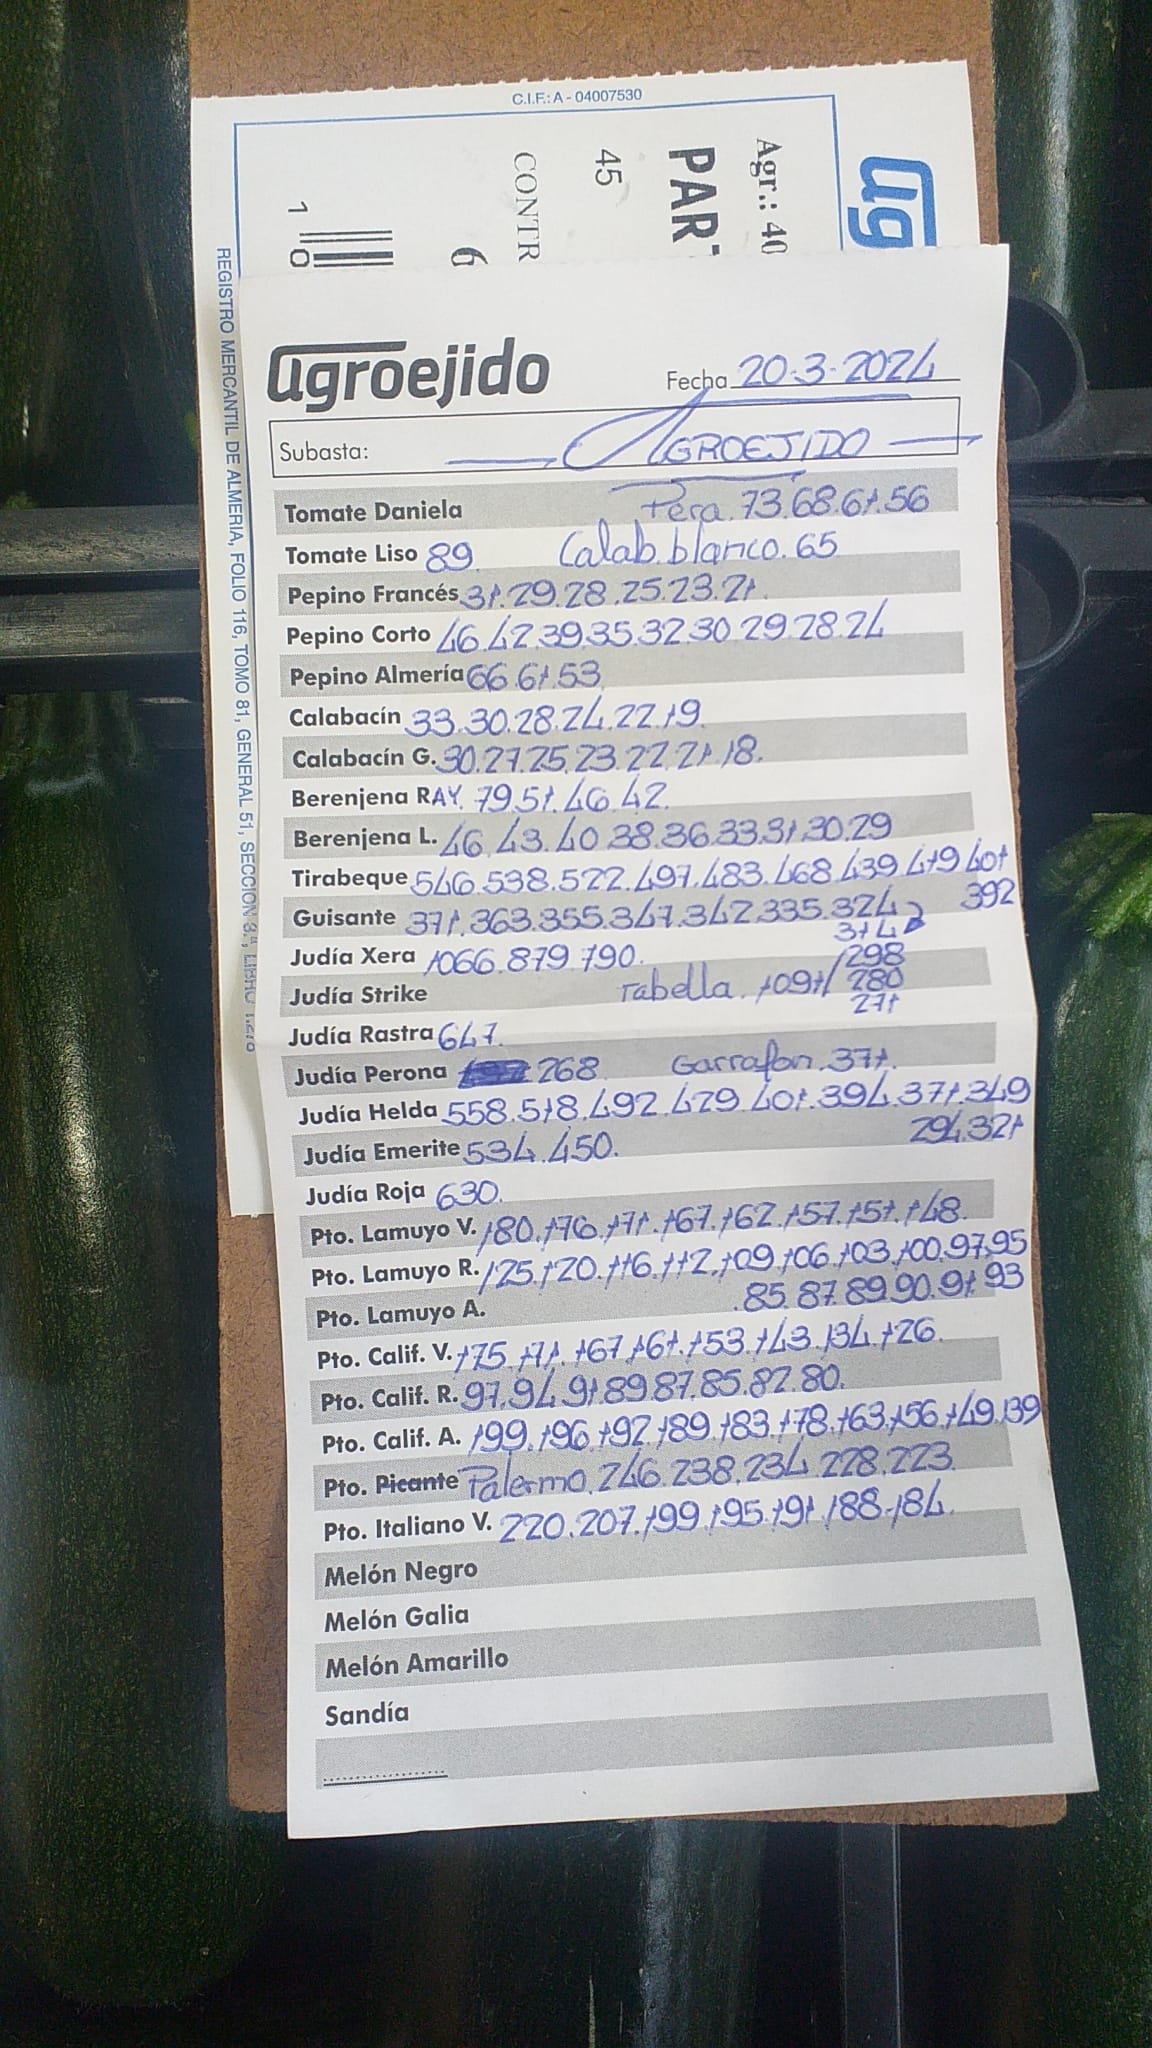 C.I.F.: A - 04007530
REGISTRO MERCANTIL DE ALMERIA, FOLIO 116, TOMO 81, GENERAL 51, SECCION 3.ª, LIBRO
Agr.: 40
PAR
45
CONTR
6
1 0
agroejido
Fecha 20-3-2024
Subasta: AGROEJIDO
Tomate Daniela Pera. 73.68.61.56
Tomate Liso 89 Calab. blanco. 65
Pepino Francés 31.29.28.25.23.21.
Pepino Corto 46.42.39.35.32.30 29.28.24
Pepino Almería 66.61.53
Calabacín 33.30.28.24.22.19.
Calabacín G. 30.27.25.23.22.21.18.
Berenjena RAY. 79.51.46.42.
Berenjena L. 46.43.40.38.36.33.31.30.29
Tirabeque 546.538.522.497.483.468.439 419 401
392
Guisante 371.363.355.347.342.335.324
314
Judía Xera 1066.879.790. 298
Judía Strike Tabella. 1091 280
271
Judía Rastra 647.
Judía Perona 268 Garrafon. 371.
Judía Helda 558.518.492.429.401.394.371.349
294.321
Judía Emerite 534.450.
Judía Roja 630.
Pto. Lamuyo V. 180.176.171.167.162.157.151.148.
Pto. Lamuyo R. 125.120.116.112.109.106.103.100.97.95
93
Pto. Lamuyo A. .85.87.89.90.91
Pto. Calif. V. 175.171.167.161.153.143.134.126.
Pto. Calif. R. 97.94.91.89.87.85.82.80.
Pto. Calif. A. 199.196.192.189.183.178.163.156.149.139
Pto. Picante Palermo. 246.238.234.228.223.
Pto. Italiano V. 220.207.199.195.191.188.184.
Melón Negro
Melón Galia
Melón Amarillo
Sandía